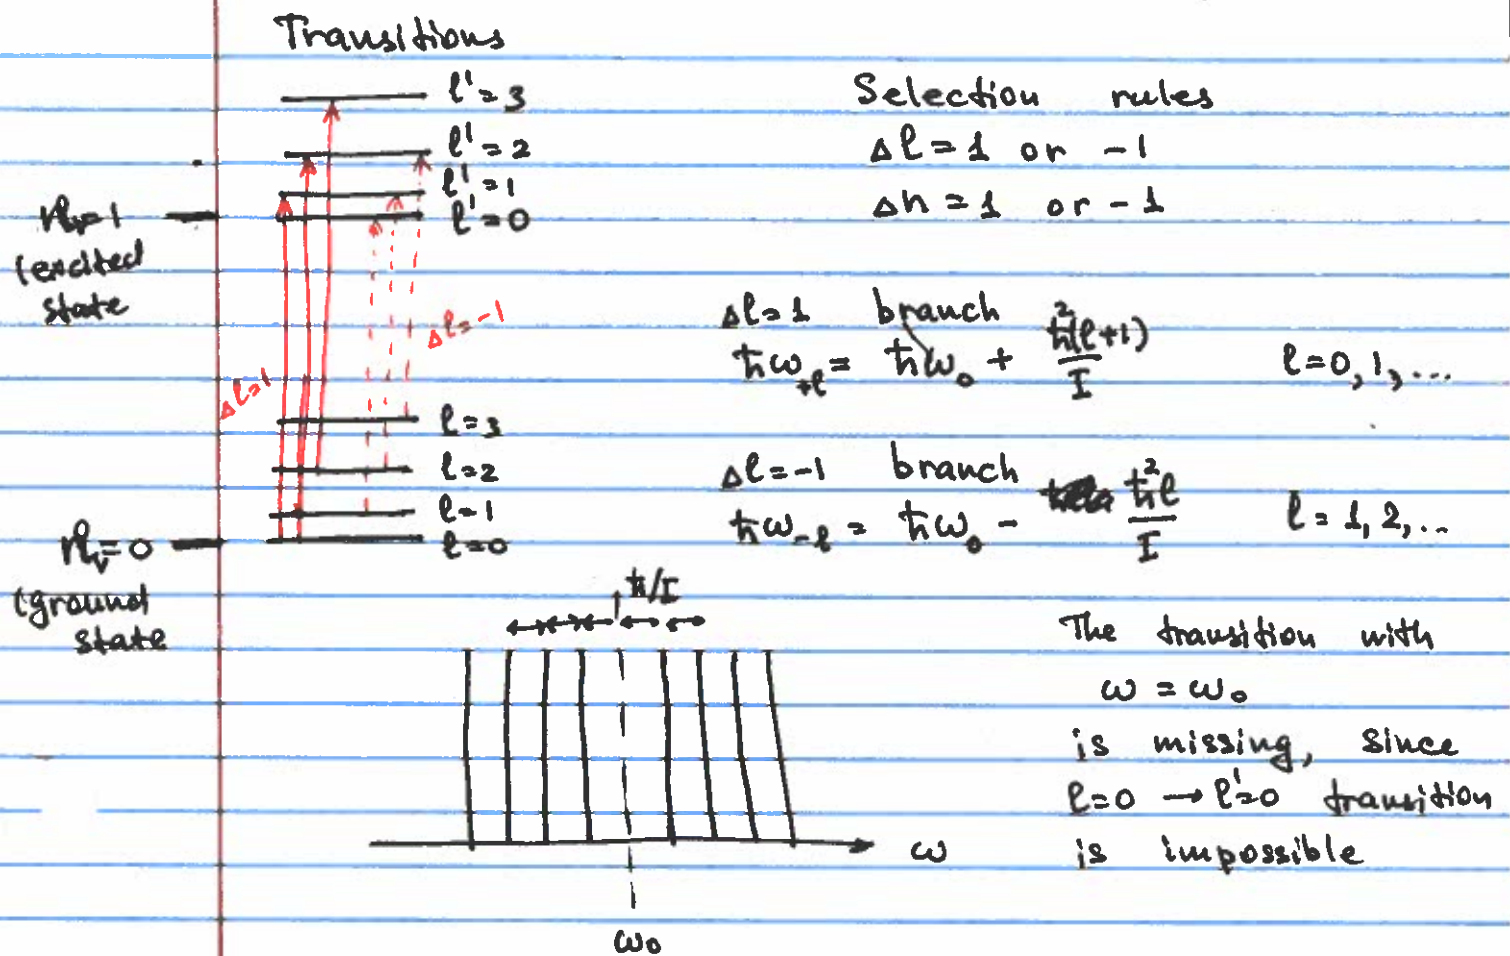 Transitions
l'=3
l'=2
l'=1
l'=0
n_v=1
(excited
state
Δl=1
Δl=-1
l=3
l=2
l=1
l=0
n_v=0
(ground
state
Selection rules
Δl=1 or -1
Δn=1 or -1
Δl=1 branch
ħω_{+l} = ħω₀ + ħ²(l+1)/I l=0,1,...
Δl=-1 branch
ħω_{-l} = ħω₀ - ħ²l/I l=1,2,...
ħ/I
ω
ω₀
The transition with
ω = ω₀
is missing, since
l=0 → l'=0 transition
is impossible